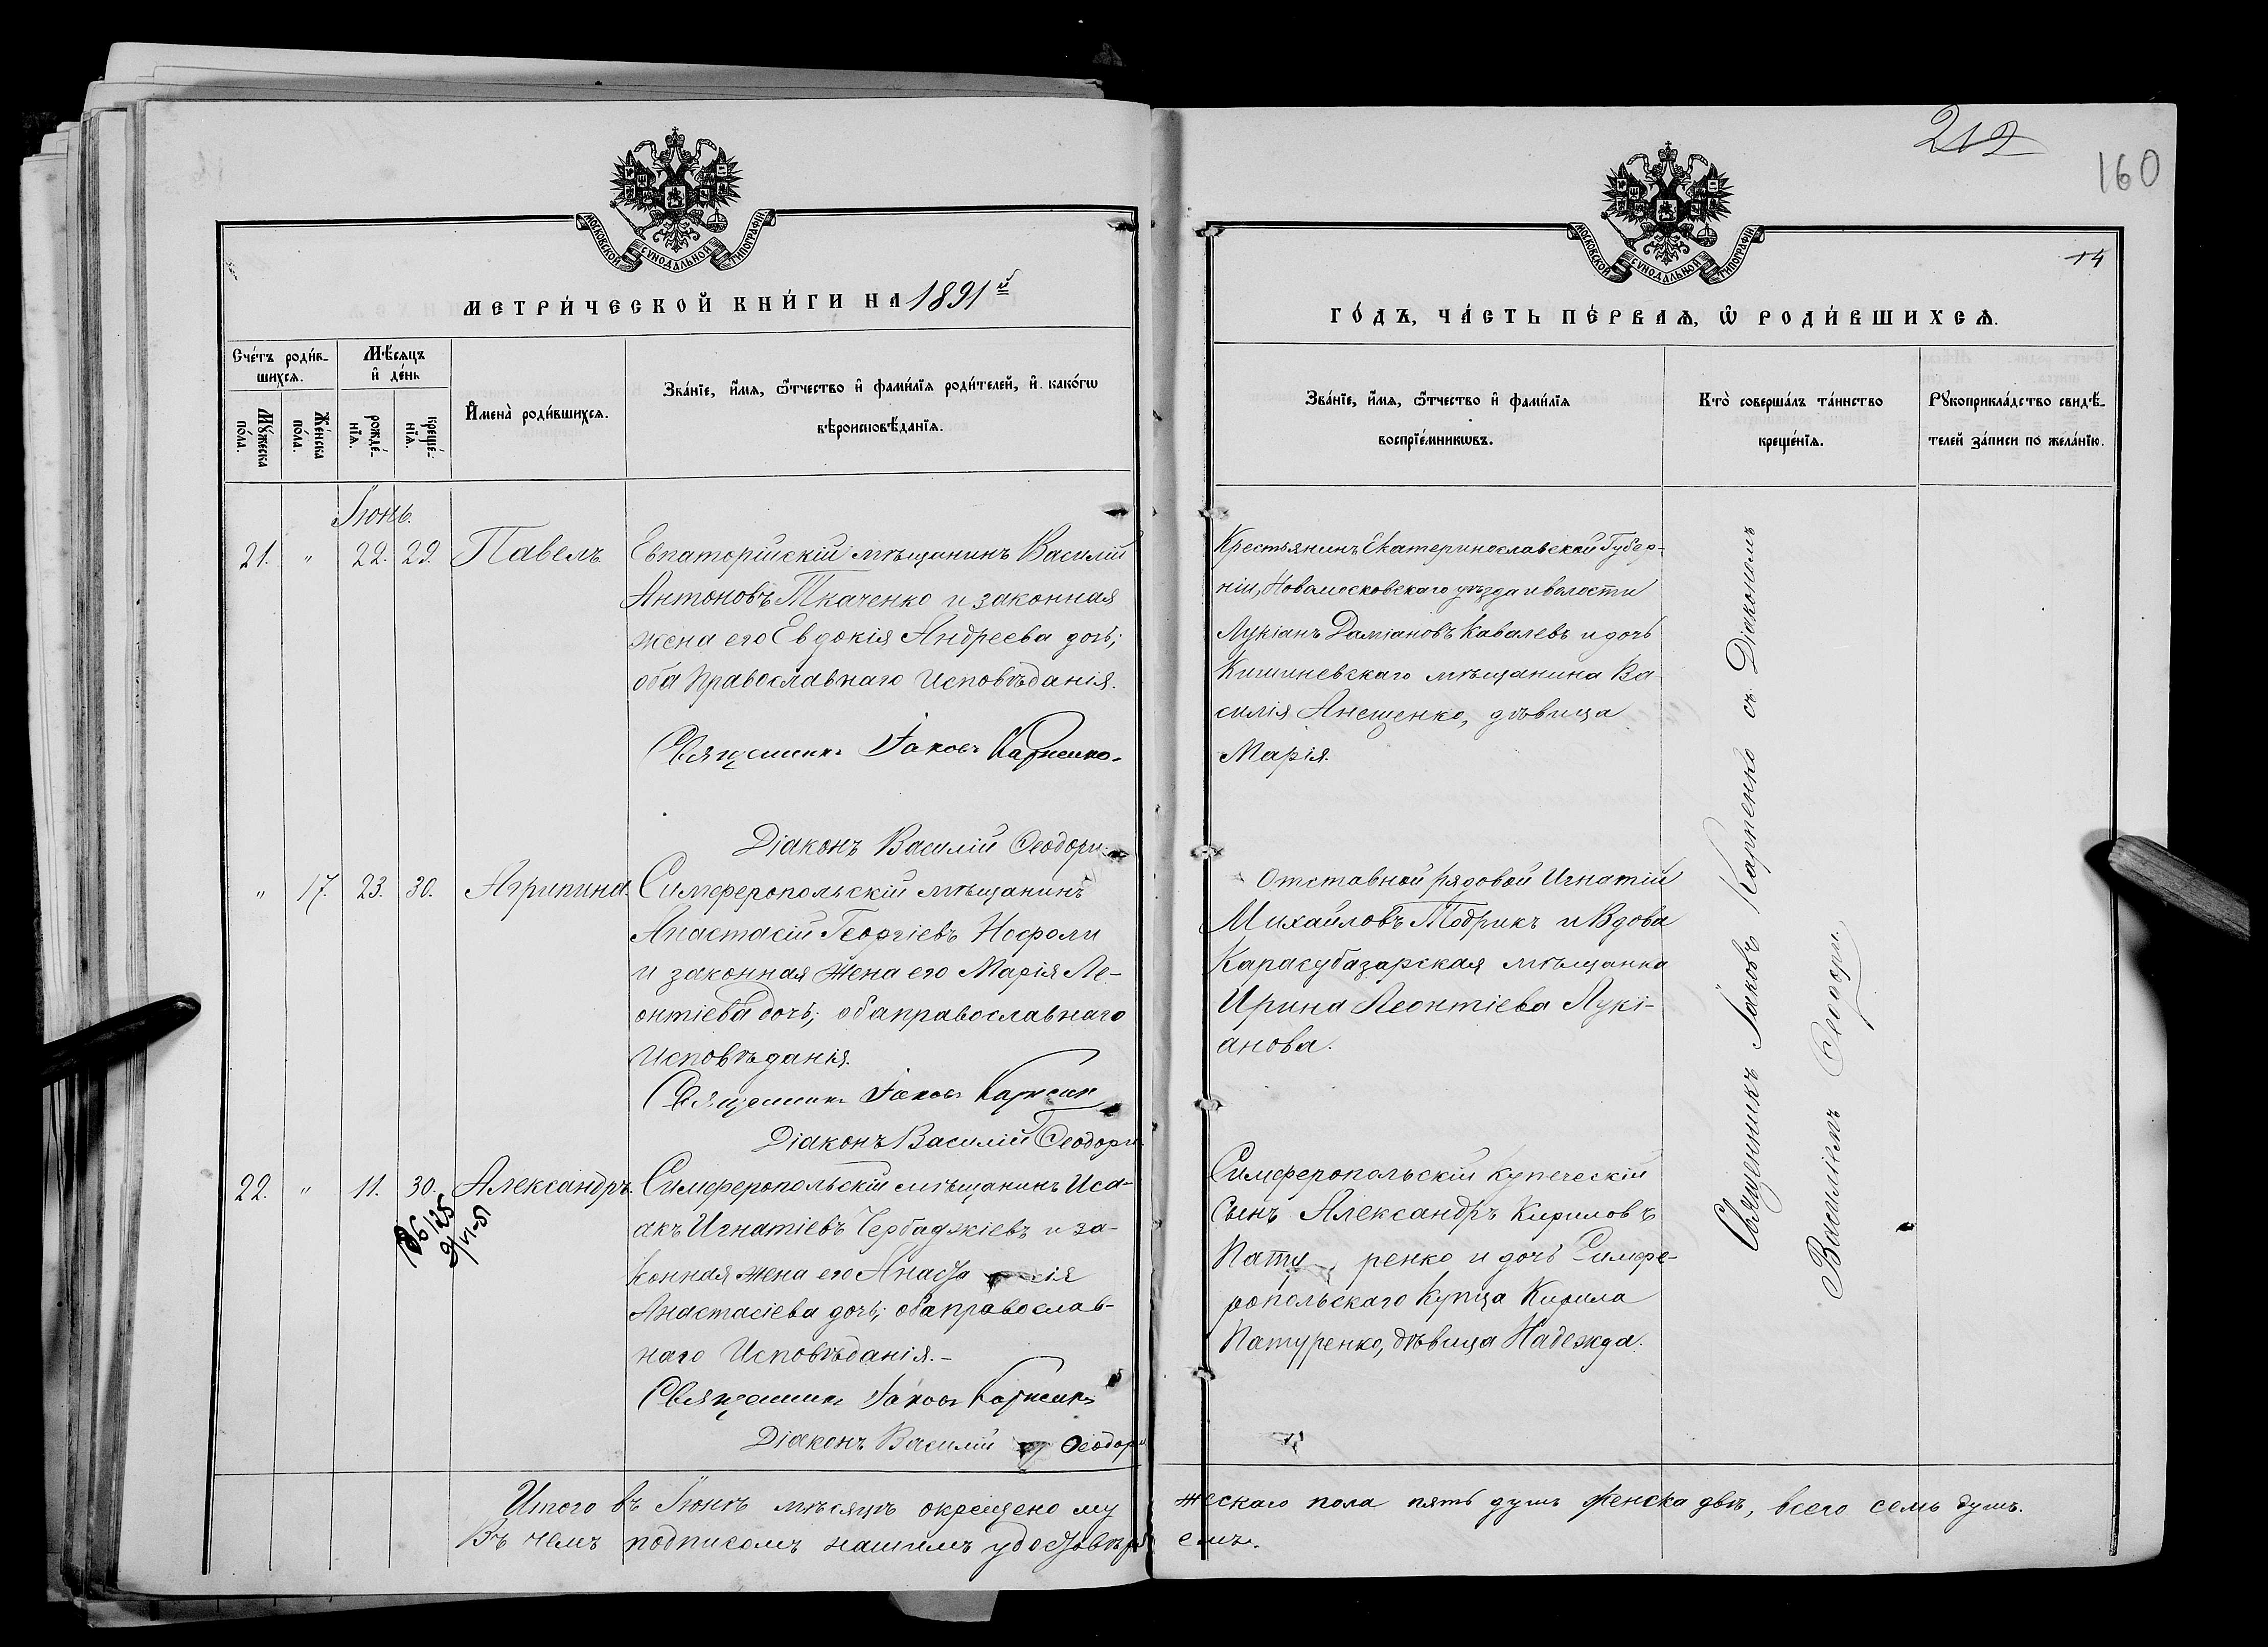 212
160
14
МОСКОВСКОЙ СѴНОДАЛЬНОЙ ТИПОГРАФІИ
МОСКОВСКОЙ СѴНОДАЛЬНОЙ ТИПОГРАФІИ
МЕТРИ́ЧЕСКОЙ КНИ́ГИ НА 1891й
ГО́ДЪ, ЧА́СТЬ ПЕ́РВАѦ, Ѽ РОДИ́ВШИХСѦ.
Сче́тъ роди́в-
шихсѧ.
Мѣ́сяцъ
и҆ де́нь
Мꙋ́жеска
по́ла.
Же́нска
по́ла.
рожде́-
нїѧ.
креще́-
нїѧ.
И҆мена̀ роди́вшихсѧ.
Зва́нїе, и҆́мѧ, ѻ҆́тчество и҆ фами́лїѧ роди́телей, и҆ како́гѡ
вѣроисповѣ́данїѧ.
Зва́нїе, и҆́мѧ, ѻ҆́тчество и҆ фами́лїѧ
воспрїе́мникѡвъ.
Кто̀ соверша́лъ та́инство
креще́нїѧ.
Рꙋкоприкла́дство свидѣ́-
телей за́писи по жела́нїю.
Іюнь.
21. " 22. 29. Павелъ.
Евпаторійскій мѣщанинъ Василій
Антоновъ Ткаченко и законная
жена его Евдокія Андреева дочь;
оба Православнаго Исповѣданія.
Священникъ Іаковъ Карпенко.
Діаконъ Василій Ѳеодори
Крестьянинъ Екатеринославской Губер-
ніи, Новомосковскаго уѣзда и волости
Лукіанъ Даміановъ Ковалевъ и дочь
Кишиневскаго мѣщанина Ва
силія Анещенко, дѣвица
Марія.
" 17. 23. 30. Агрипина.
Симферопольскій мѣщанинъ
Анастасій Георгіевъ Нофоли
и законная жена его Марія Ле-
онтіева дочь; оба православнаго
Исповѣданія.
Священникъ Іаковъ Карпенк
Діаконъ Василій Ѳеодори
Отставной рядовой Игнатій
Михайловъ Тодрикъ и Вдова
Карасубазарская мѣщанка
Ирина Леонтіева Лукі-
анова.
22. " 11. 30. Александръ.
Симферопольскій мѣщанинъ Иса-
акъ Игнатіевъ Чербаджіевъ и за-
конная жена его Анаста сія
Анастасіева дочь; оба православ-
наго Исповѣданія.-
Священникъ Іаковъ Карпенк
Діаконъ Василій Ѳеодори
Симферопольскій купеческій
Сынъ Александръ Кириловъ
Пату ренко и дочь Симфе-
ропольскаго Купца Кирила
Патуренко, дѣвица Надежда.
Священникъ Іаковъ Карпенко съ Діакономъ
Василіемъ Ѳеодори
Итого въ Іюнѣ мѣсяцѣ окрещено му
жескаго пола пять душъ женска двѣ, всего семь душъ.
Въ чемъ подписомъ нашимъ удостовѣря
емъ.